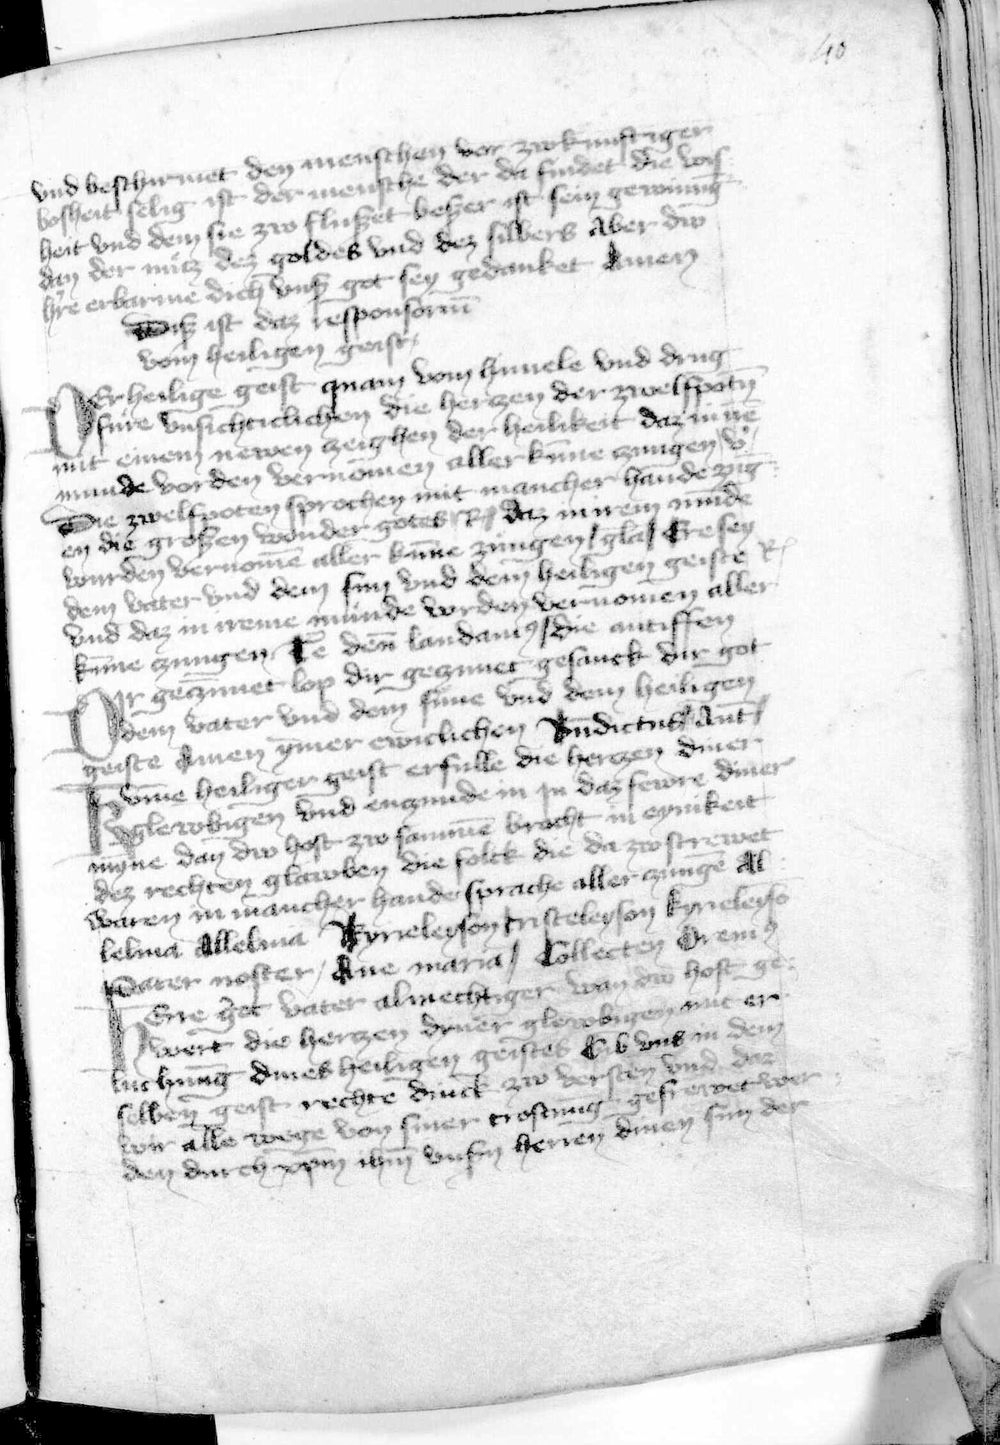 40
vnd beschirmet den menschen vor zwkunftiger
bosheit selig ist der mensche der da findet die wis
heit vnd dem sie zw flußet beßer ist sein gewinūg
dan der nutz dez goldes vnd dez silbers Aber dw
h're erbarme dich vnß got sey gedanket Amen
Diß ist daz responsoriū
vom heiligen geist
Der heilige geist quam vom himele vnd drug
fure vnsichticlichen die herzen der zwelfpotn̄
mit einem newen zeichen der heilikeit daz in irē
munde worden vernomen aller kūne zungen v'
Die zwelfpoten sprochen mit mancher hande zūg
en die großen wonder gotes R daz in irem mūde
wurden vernomē aller kūne zungen gl̄a Ere sey
dem vater vnd dem sun vnd dem heiligen geiste R
vnd daz in ireme munde worden vernomen aller
kūne zungen Te deū laudamꝰ die antiffen
Dir geczimet lop dir geczimet gesanck dir got
dem vater vnd dem sune vnd dem heiligen
geiste Amen ymer ewiclichen Bn̄dictus Ant
Kvme heiliger geist erfulle die herczen diner
glewbigen vnd enczunde in in daz fewre diner
mȳne dan dw host zw sammē brocht in eynikeit
dez rechten glawben die folck die da zwstrewet
waren in mancher hande sprache aller zungē Al
leluia Alleluia Kyrieleyson cristeleyson kyrieleyso
Pater noster Aue maria Collecten Oremꝰ
Herre got vater almechtiger wan dw host ge
lert die herczen dyner glewbigen mit er
luchnūg dines heiligen geistes Gib vns in dem
selben geist rechte dinck zw versten vnd daz
wir alle wege von siner trostnūg gefrewet wer
den durch xp̄m ih̄m vnsn̄ herren dinen sun der